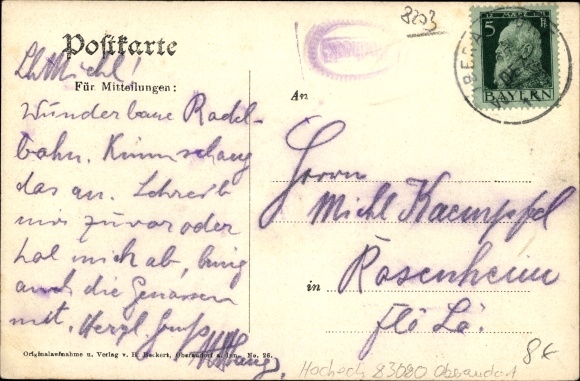 8203
5
BAYERN
Postkarte
Lb. Michl!
Für Mitteilungen:
Wunderbare Rodel-
bahn. Komm schaug
das an. Schreib
mir zuvor oder
hol mich ab, bring
auch die Genossen
mit. Herzl. Gruß
An
Herrn
Michl Kaempfel
in Rosenheim
Originalaufnahme u. Verlag v. H. Beckert, Oberaudorf a. Inn. No. 26.
Hocheck 83080 Oberaudorf
8€